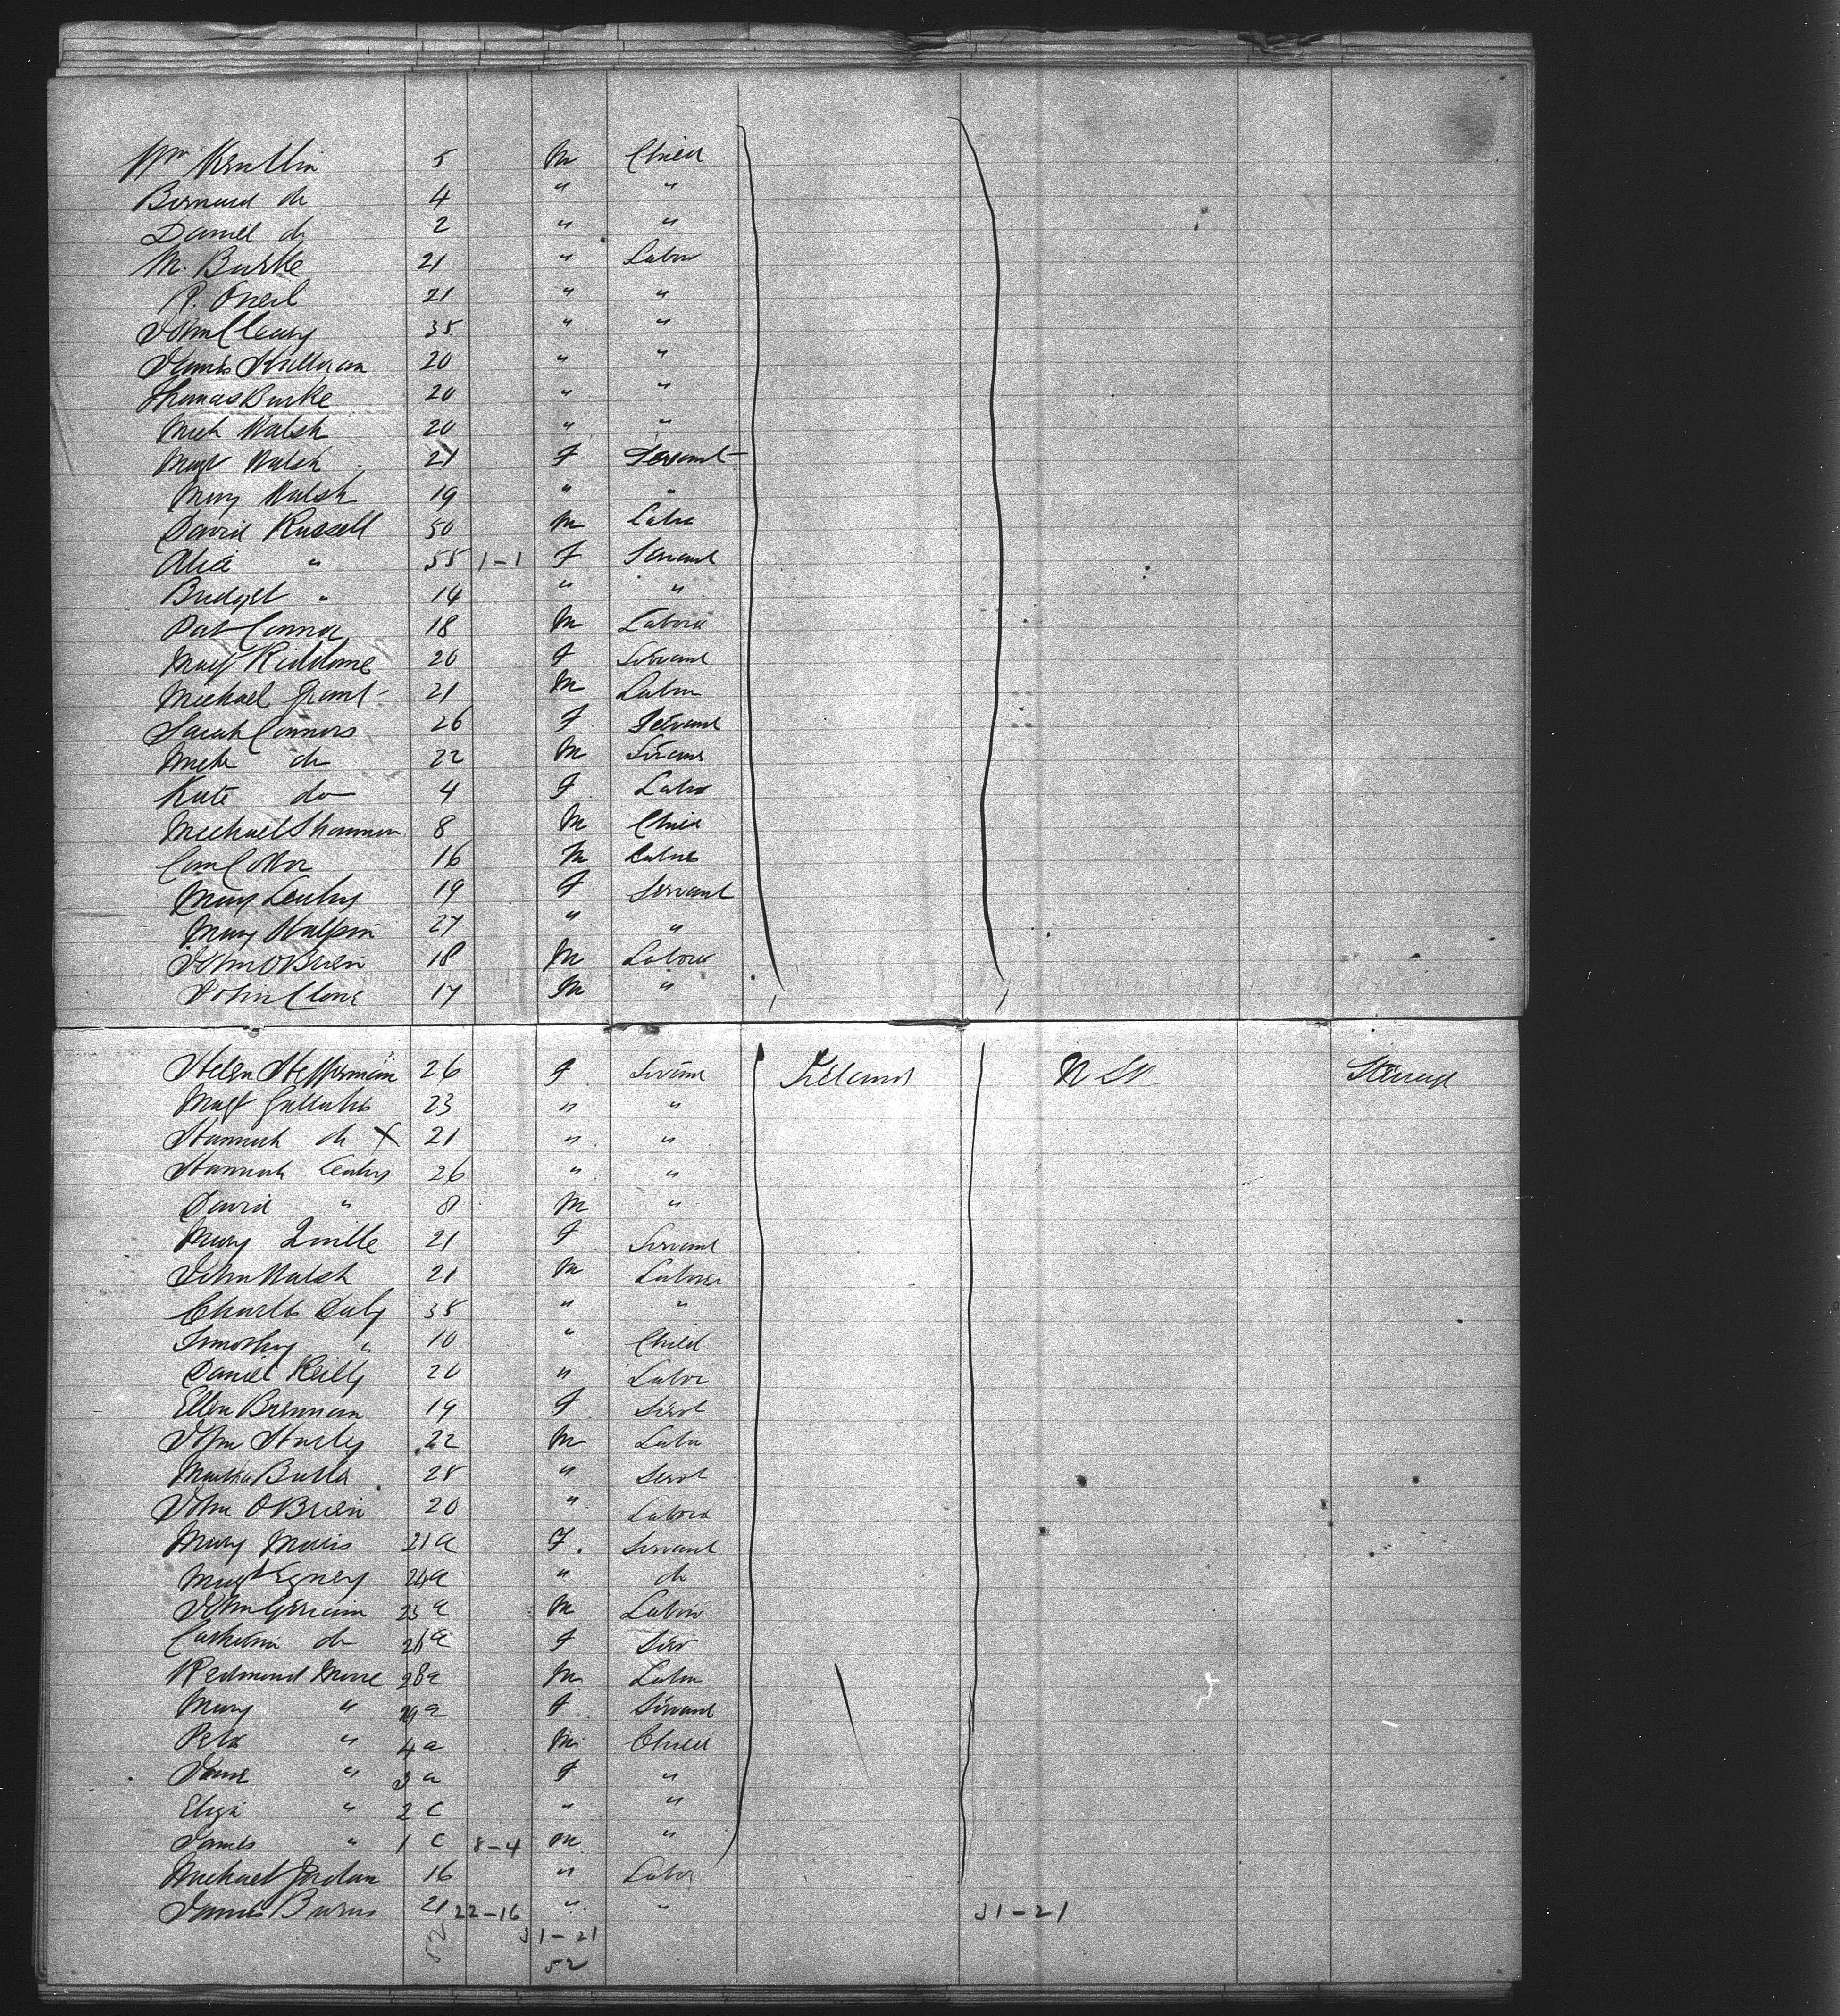 Wm 5 M Child
Bernard do 4 " "
Daniel do 2 " "
M. Burke 21 " Labor
P. Oneil 21 " "
John Cleary 35 " "
James 20 " "
Thomas Burke 20 " "
Mich Walsh 20 " "
Magt Walsh 21 F Servant
Mary Walsh 19 " "
David Russell 50 M Labor
Alice " 55 1-1 F Servant
Bridget " 14 " "
Pat Connor 18 M Labor
Magt 20 F Servant
Michael Grant 21 M Labor
Sarah Connors 26 F Servant
Mich do 22 M Servant
Kate do 4 F Labor
Michael Shannon 8 M Child
16 M Labor
Mary Leahy 19 F Servant
Mary Halpin 27 " "
John OBrien 18 M Labor
John 17 M "
Helen Heffernan 26 F Servant Ireland Steerage
Magt 23 " "
Hannah do X 21 " "
Hannah Leahy 26 " "
David " 8 M "
Mary 21 F Servant
John Walsh 21 M Laborer
Charles Daly 35 " "
Timothy " 10 " Child
Daniel Reilly 20 " Labor
Ellen Brennan 19 F Servt
John Hurley 22 M Labor
Martha Butler 28 " Servt
John OBrien 20 " Labor
Mary 21 a F. Servant
Magt 24 a " do
John 23 a M Labor
Catherine do 26 a F Serv
Redmond 28 a M Labor
Mary " a F Servant
Peter " 4 a M Child
" 3 a F "
Eliza " 2 c " "
James " 1 c 8-4 M "
Michael Jordan 16 " Labor
James Burns 21 22-16 " " 31-21
52 31-21
52